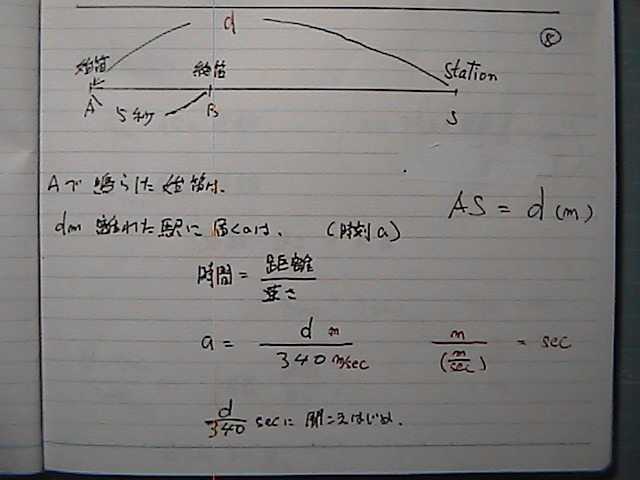 d
⑧
始笛
終笛
Station
A
5秒
B
S
Aで鳴らした始笛は、
dm 離れた駅に届くaは、 (時刻a)
AS = d (m)
時間 = 距離 / 速さ
a = d m / 340 m/sec
m / (m/sec) = sec
d/340 secに 聞こえはじめ.